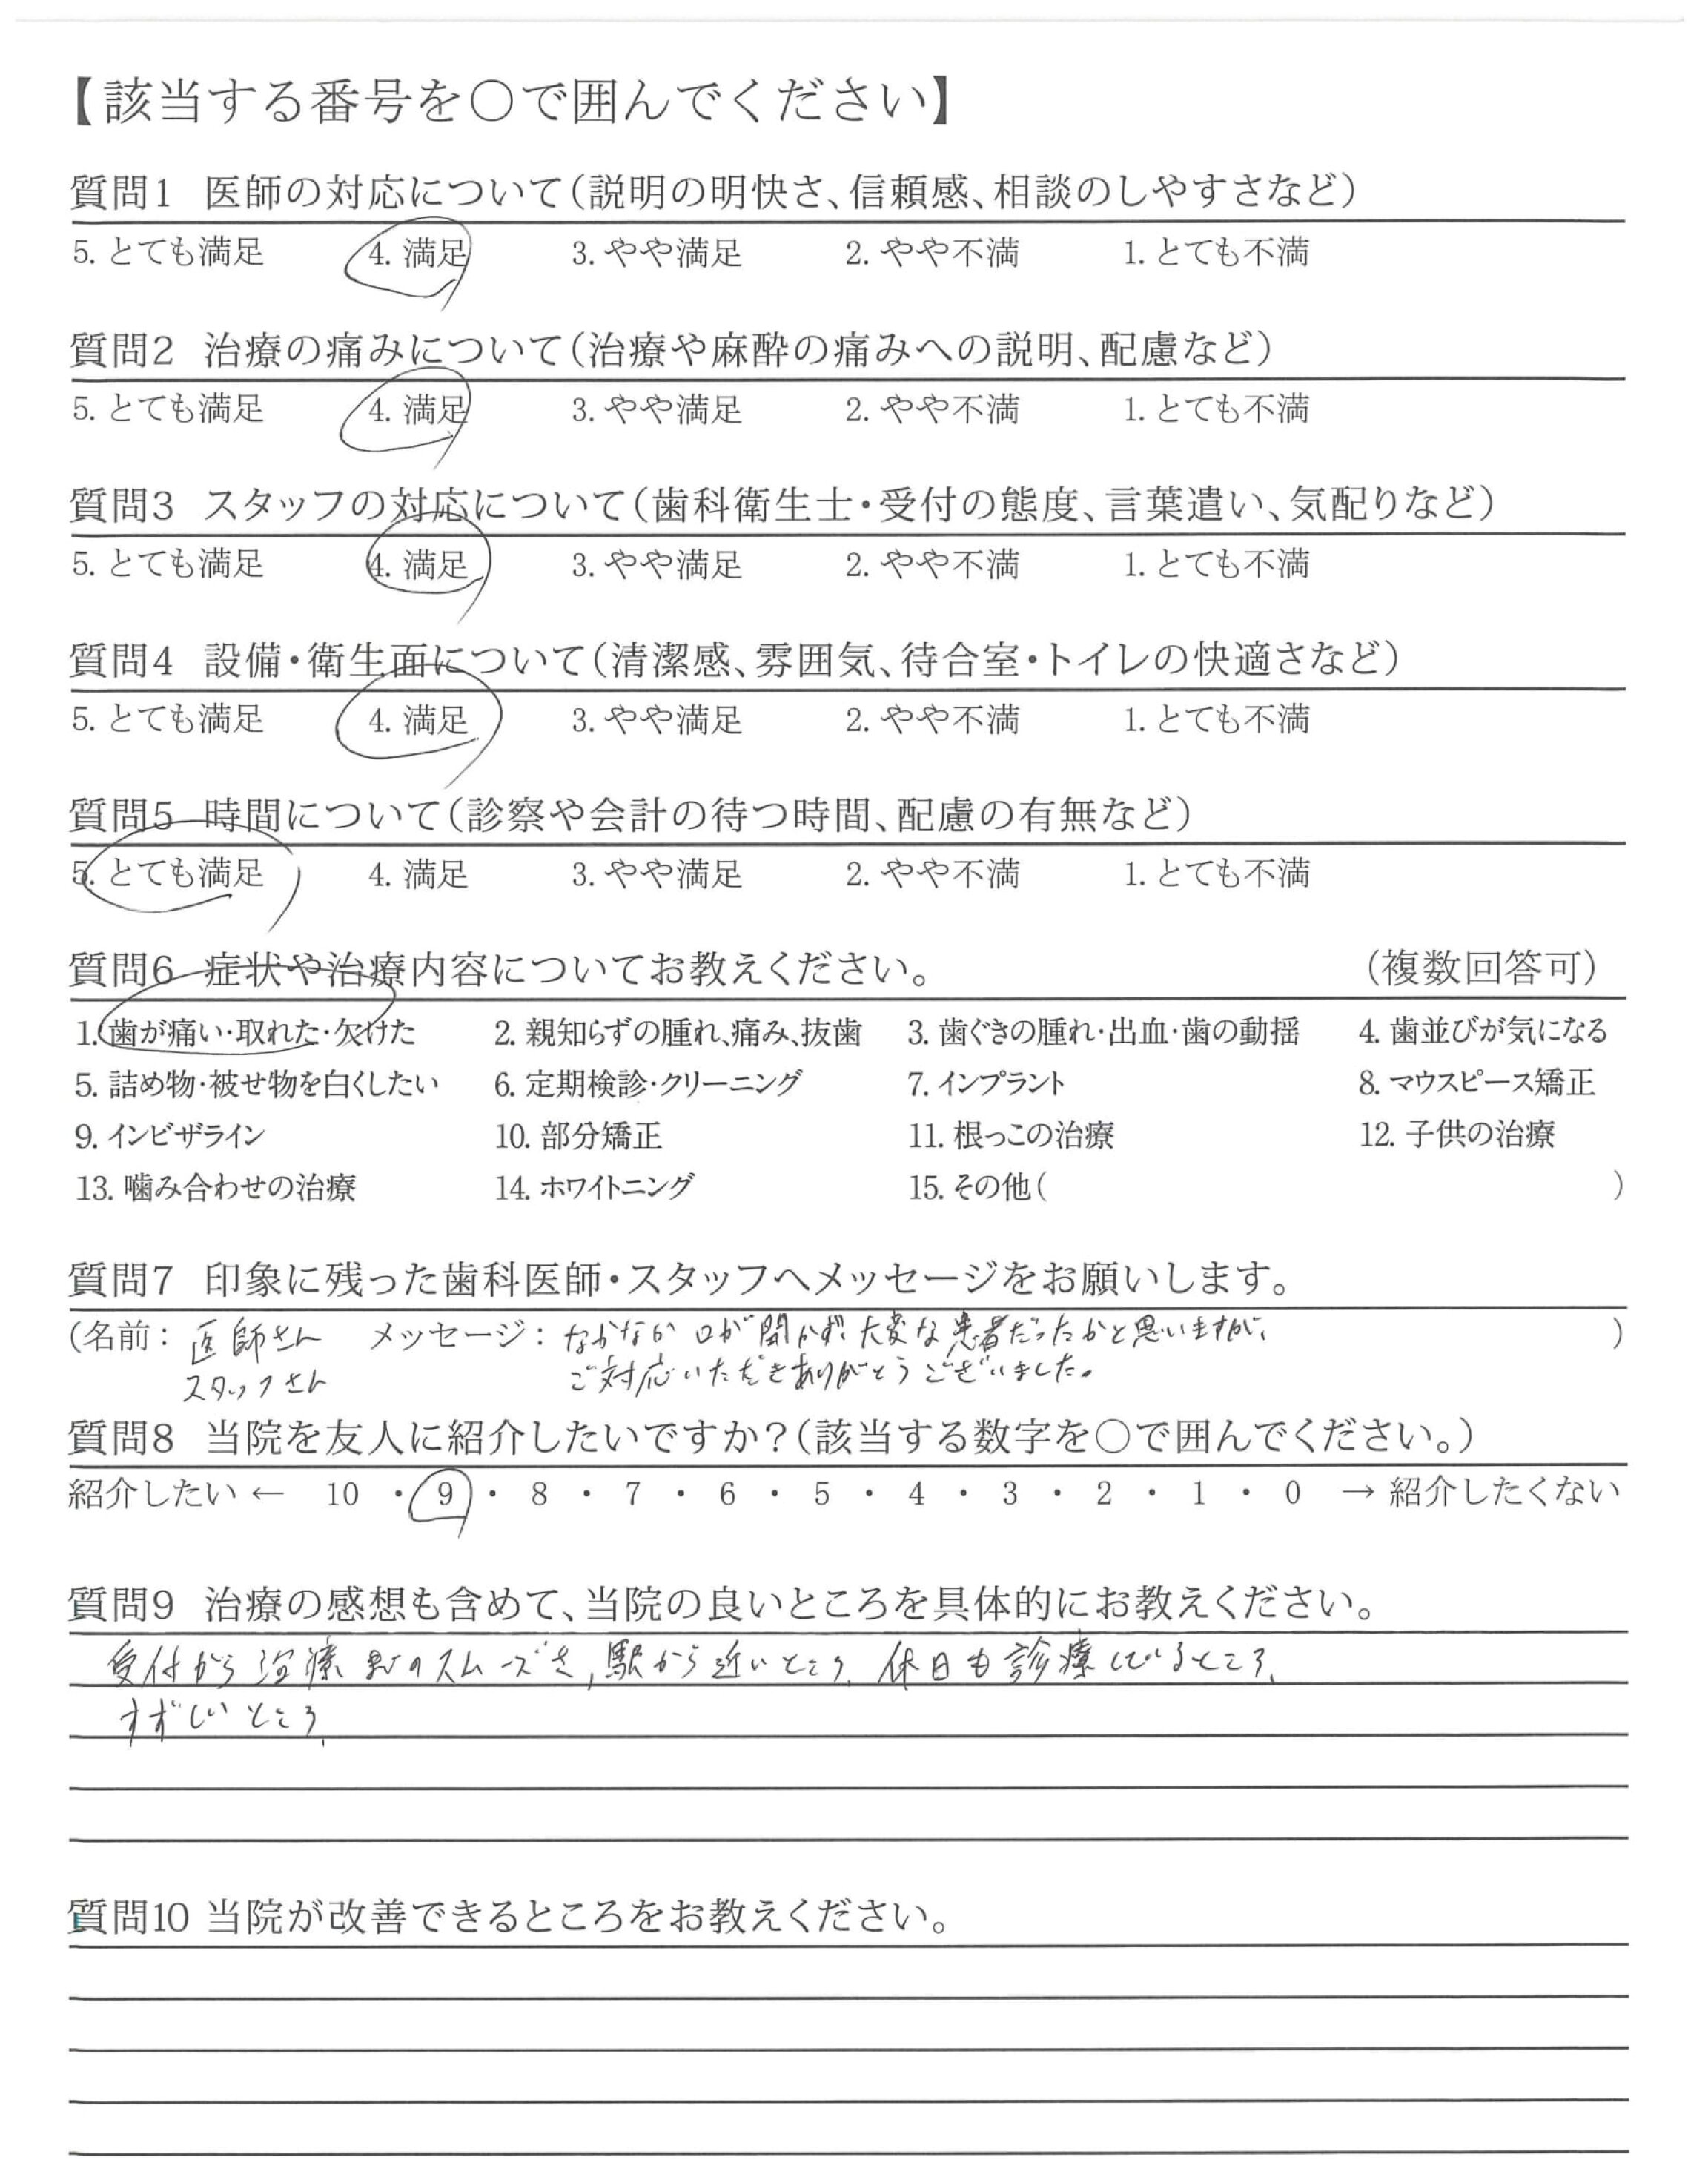 【該当する番号を○で囲んでください】
質問1 医師の対応について(説明の明快さ、信頼感、相談のしやすさなど)
5. とても満足 4. 満足 3. やや満足 2. やや不満 1. とても不満
質問2 治療の痛みについて(治療や麻酔の痛みへの説明、配慮など)
5. とても満足 4. 満足 3. やや満足 2. やや不満 1. とても不満
質問3 スタッフの対応について(歯科衛生士・受付の態度、言葉遣い、気配りなど)
5. とても満足 4. 満足 3. やや満足 2. やや不満 1. とても不満
質問4 設備・衛生面について(清潔感、雰囲気、待合室・トイレの快適さなど)
5. とても満足 4. 満足 3. やや満足 2. やや不満 1. とても不満
質問5 時間について(診察や会計の待つ時間、配慮の有無など)
5. とても満足 4. 満足 3. やや満足 2. やや不満 1. とても不満
質問6 症状や治療内容についてお教えください。 (複数回答可)
1. 歯が痛い・取れた・欠けた 2. 親知らずの腫れ、痛み、抜歯 3. 歯ぐきの腫れ・出血・歯の動揺 4. 歯並びが気になる
5. 詰め物・被せ物を白くしたい 6. 定期検診・クリーニング 7. インプラント 8. マウスピース矯正
9. インビザライン 10. 部分矯正 11. 根っこの治療 12. 子供の治療
13. 噛み合わせの治療 14. ホワイトニング 15. その他( )
質問7 印象に残った歯科医師・スタッフへメッセージをお願いします。
(名前: 医師さん メッセージ: なかなか口が開かず、大変な患者だったかと思いますが、 )
スタッフさん ご対応いただきありがとうございました。
質問8 当院を友人に紹介したいですか?(該当する数字を○で囲んでください。)
紹介したい ← 10 ・ 9 ・ 8 ・ 7 ・ 6 ・ 5 ・ 4 ・ 3 ・ 2 ・ 1 ・ 0 → 紹介したくない
質問9 治療の感想も含めて、当院の良いところを具体的にお教えください。
受付から治療までのスムーズさ、駅から近いところ、休日も診療しているところ、
すずしいところ、
質問10 当院が改善できるところをお教えください。